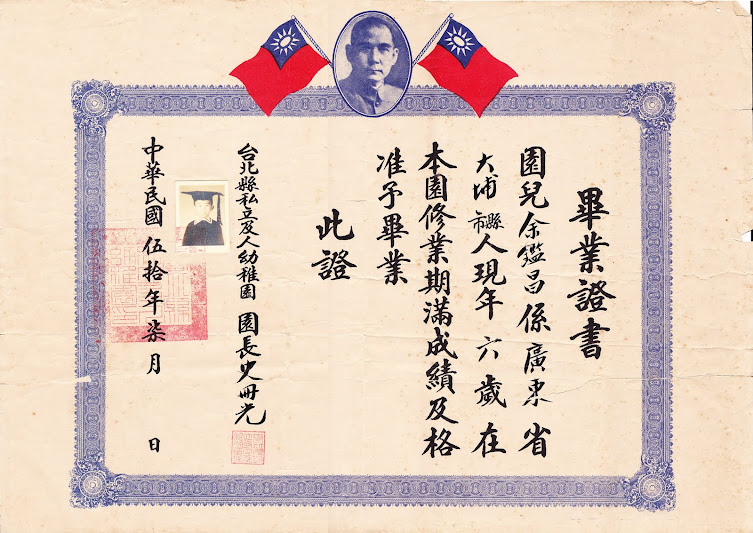 畢業證書
園兒余鑑昌係廣東省
大埔縣市人現年六歲在
本園修業期滿成績及格
准予畢業
此證
台北縣私立及人幼稚園 園長史冊光
中華民國伍拾年柒月 日